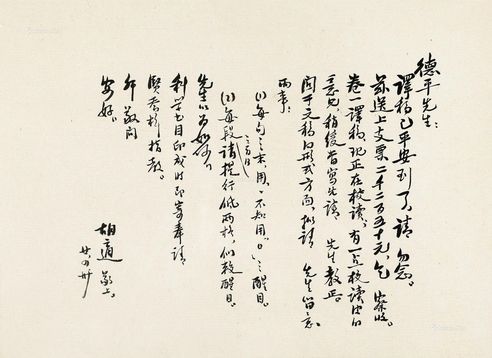 德平先生：
譯稿已平安到了，請勿念。
茲送上支票二千二百五十元，乞 察收。
卷一譯稿，現正在校讀，有一点校讀中的
意見，稍緩當寫出請 先生教正。
関于元稿的形式方面，擬請 先生留意
兩事：
(1)每句之末，用。不如用。之醒目。
(2)每段請提行低兩格，似較醒目。
先生以為如何？
科學書目印成時即寄奉請
賢喬梓指教。
外敬問
安好。
胡適 敬上。
廿，卅